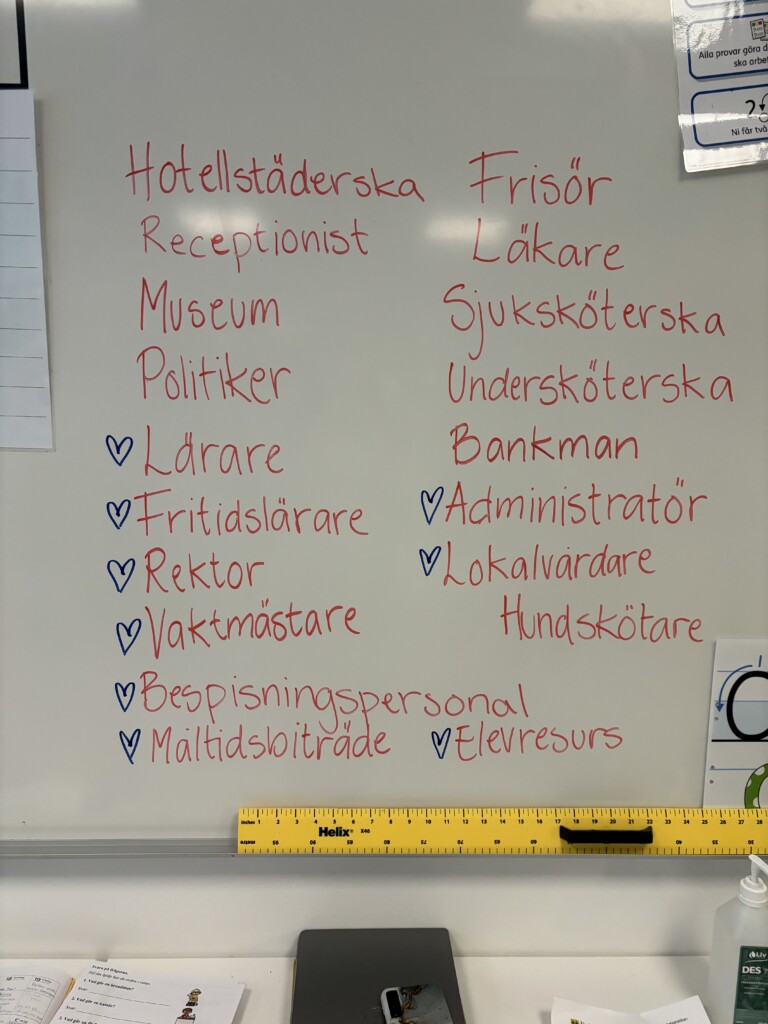 Hotellstäderska
Receptionist
Museum
Politiker
Lärare
Fritidslärare
Rektor
Vaktmästare
Bespisningspersonal
Måltidsbiträde
Frisör
Läkare
Sjuksköterska
Undersköterska
Bankman
Administratör
Lokalvårdare
Hundskötare
Elevresurs
Alla provar göra d
ska arbet
2
Ni får två
inches 1 2 3 4 5 6 7 8 9 10 11 12 13 14 15 16 17 18 19 20 21 22 23 24 25 26 27 28
Helix® X46
metre 95 90 85 80 75 70 65 60 40 35 30
Svara på frågorna.
Liv
DES